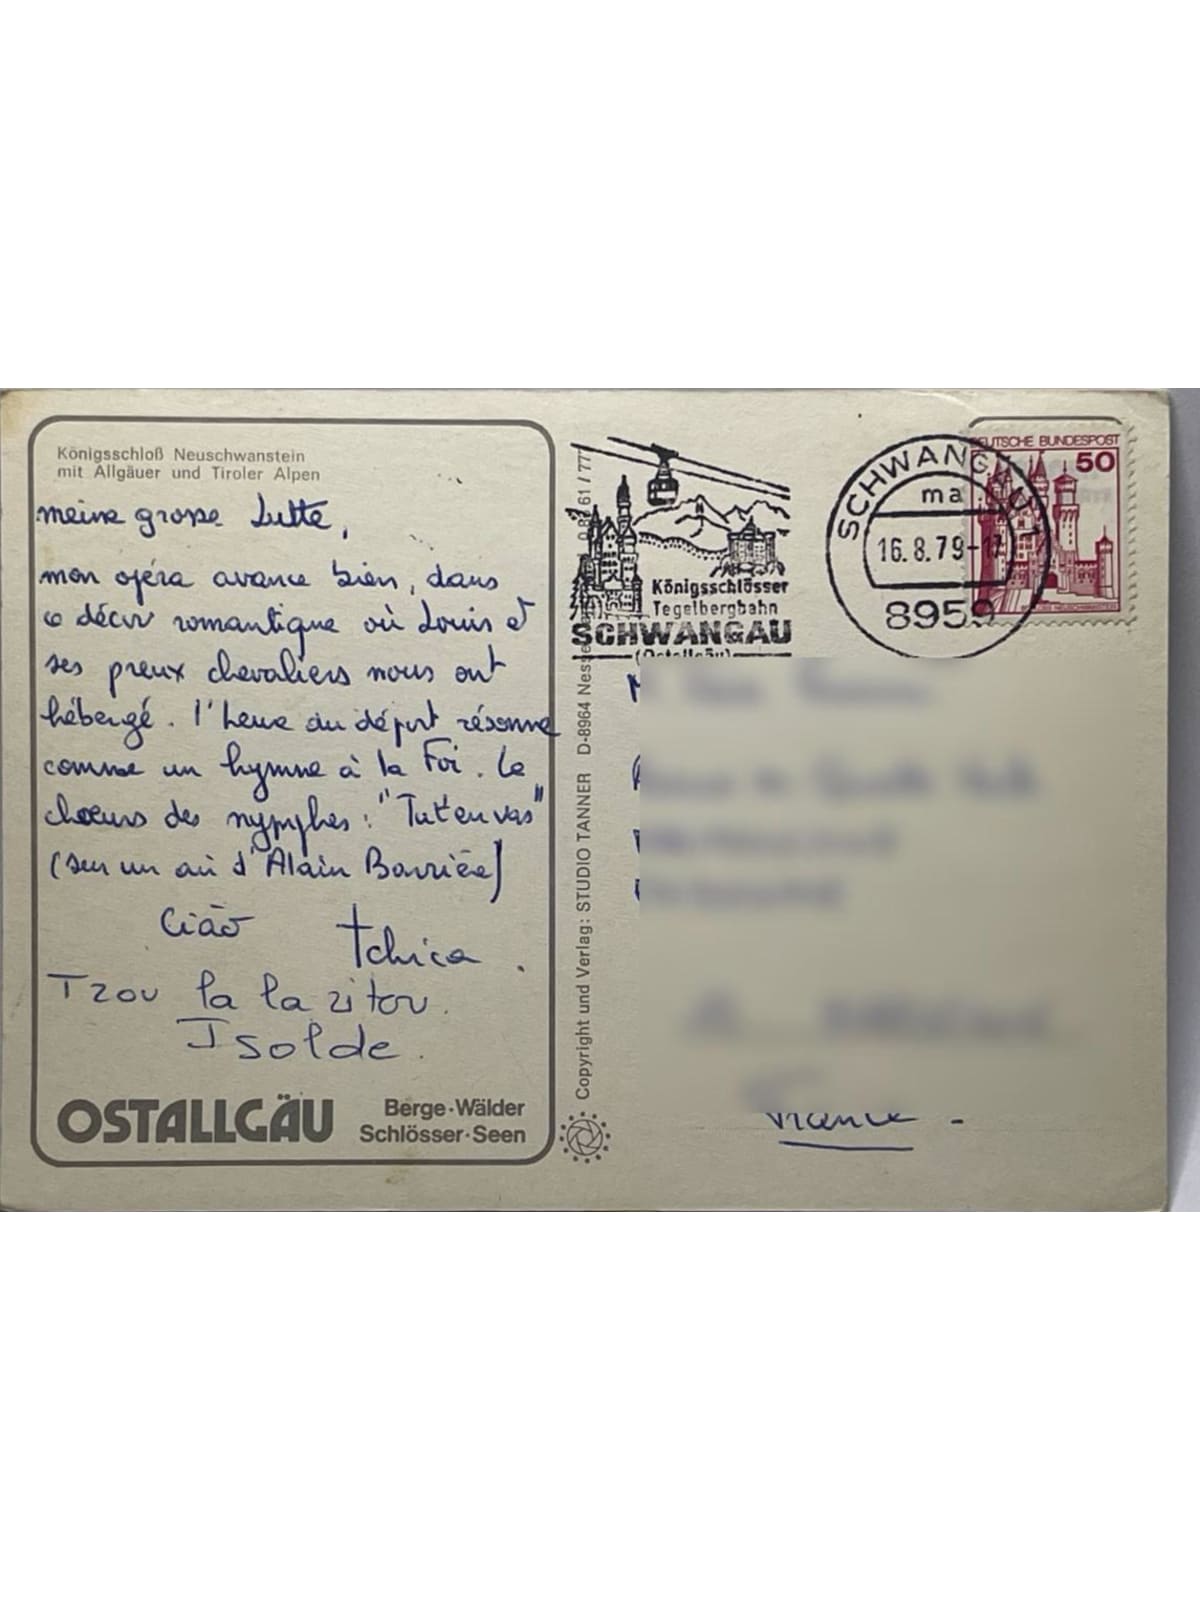 Königsschloß Neuschwanstein
mit Allgäuer und Tiroler Alpen
meine grosse Lutte,
mon opéra avance bien, dans
ce décor romantique où Louis et
ses preux chevaliers nous ont
hébergé. l'heure du départ résonne
comme un hymne à la Foi. Le
choeurs des nymphes : "Tut'en vas"
(sur un air d'Alain Barrière)
Ciào
tchica.
Tzou la la zitou.
Isolde.
OSTALLGÄU
Berge·Wälder
Schlösser·Seen
Copyright und Verlag: STUDIO TANNER D-8964 Nesse
61/777
Königsschlösser
Tegelbergbahn
SCHWANGAU
(Ostallgäu)
SCHWANGAU 1
ma
16.8.79-17
8959
DEUTSCHE BUNDESPOST
50
France -